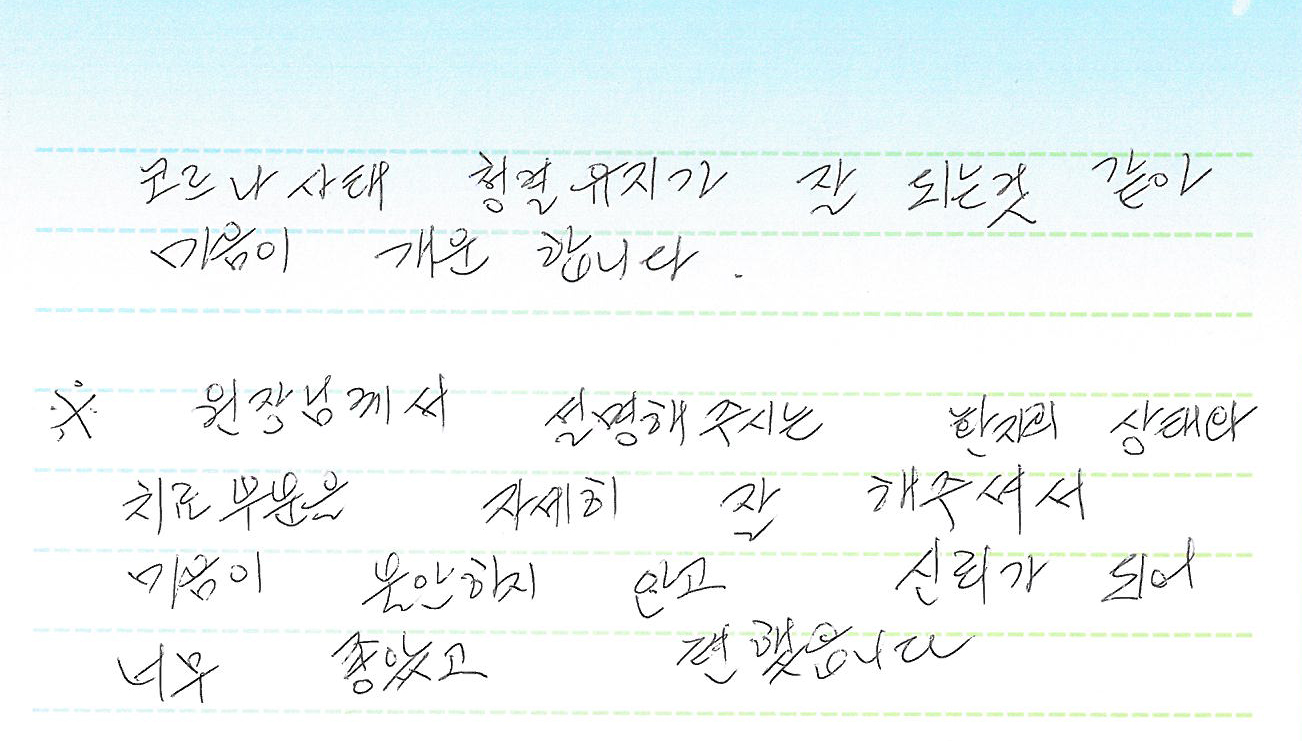 코르나사태 청결유지가 잘 되는것 같아
마음이 개운 합니다.
※ 원장님께서 설명해주시는 환자의 상태와
치료부분은 자세히 잘 해주셔서
마음이 불안하지 안고 신뢰가 되어
너무 좋았고 편했읍니다